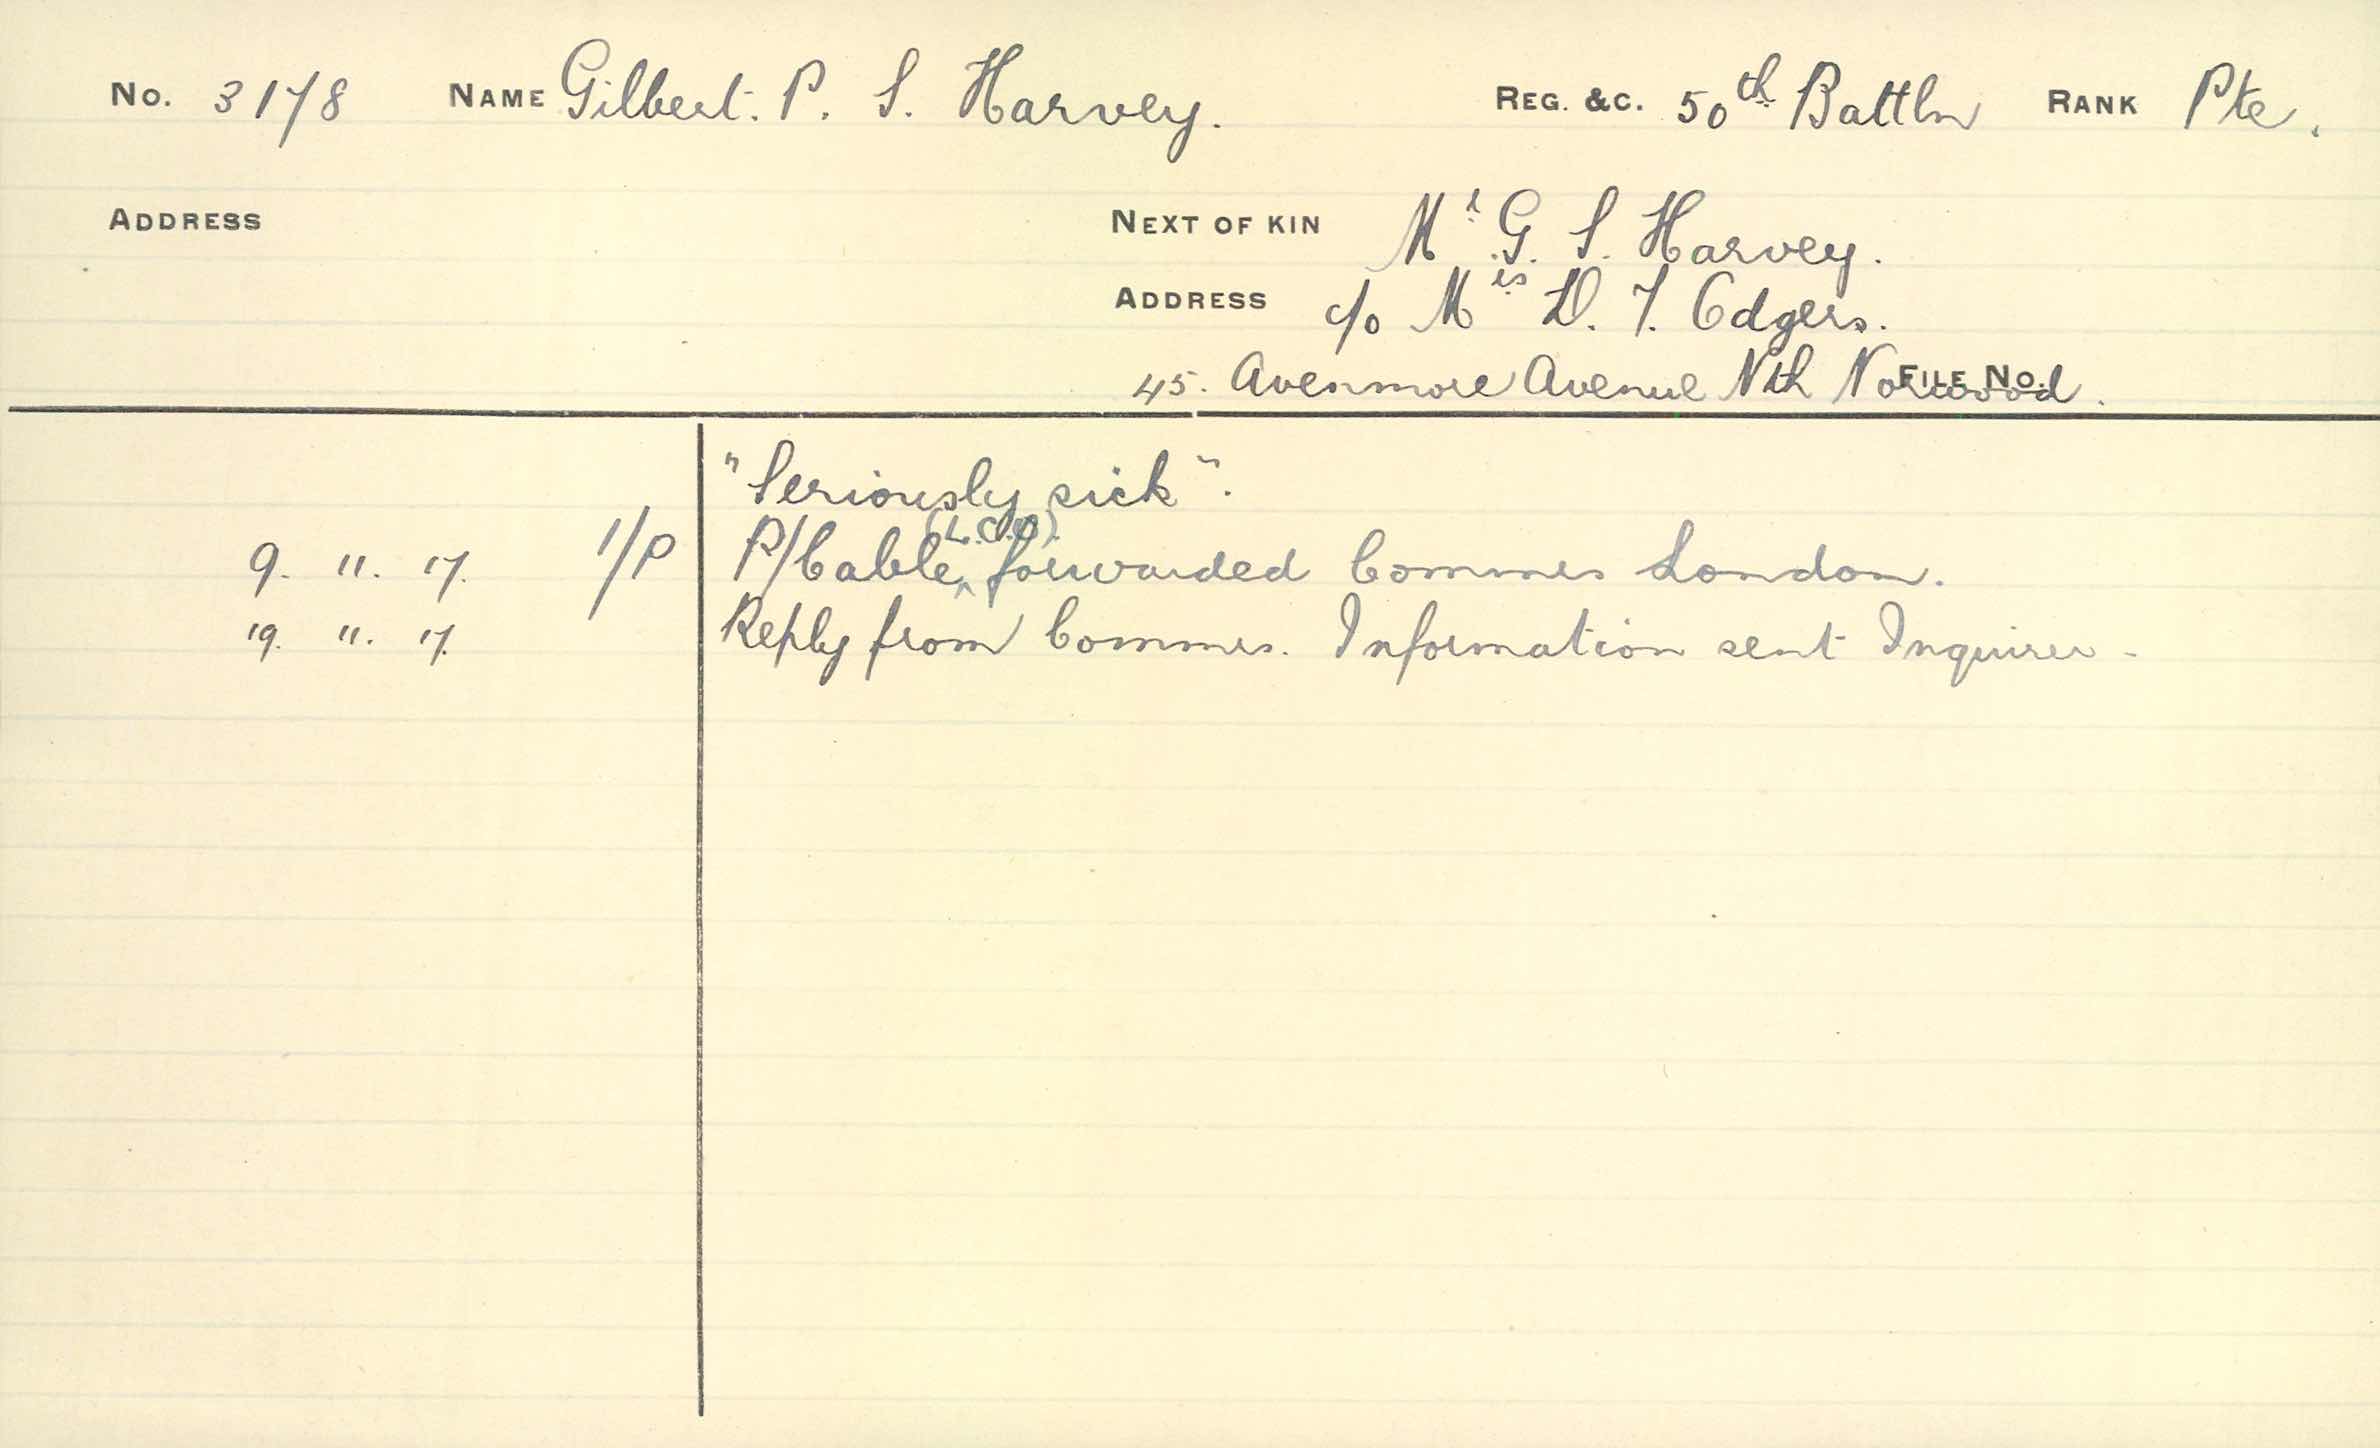 No. 3178 NAME Gilbert. P. S. Harvey. REG. &C. 50th Battln RANK Pte.
ADDRESS
NEXT OF KIN Mr G. S. Harvey.
ADDRESS c/o Mrs D. T. Odgers.
45. Avenmore Avenue Nth Norwood.
FILE No.
"Seriously sick".
(L.C.O).
9. 11. 17. 1/P P/Cable forwarded Commrs London.
19. 11. 17. Reply from Commrs. Information sent Inquirer -